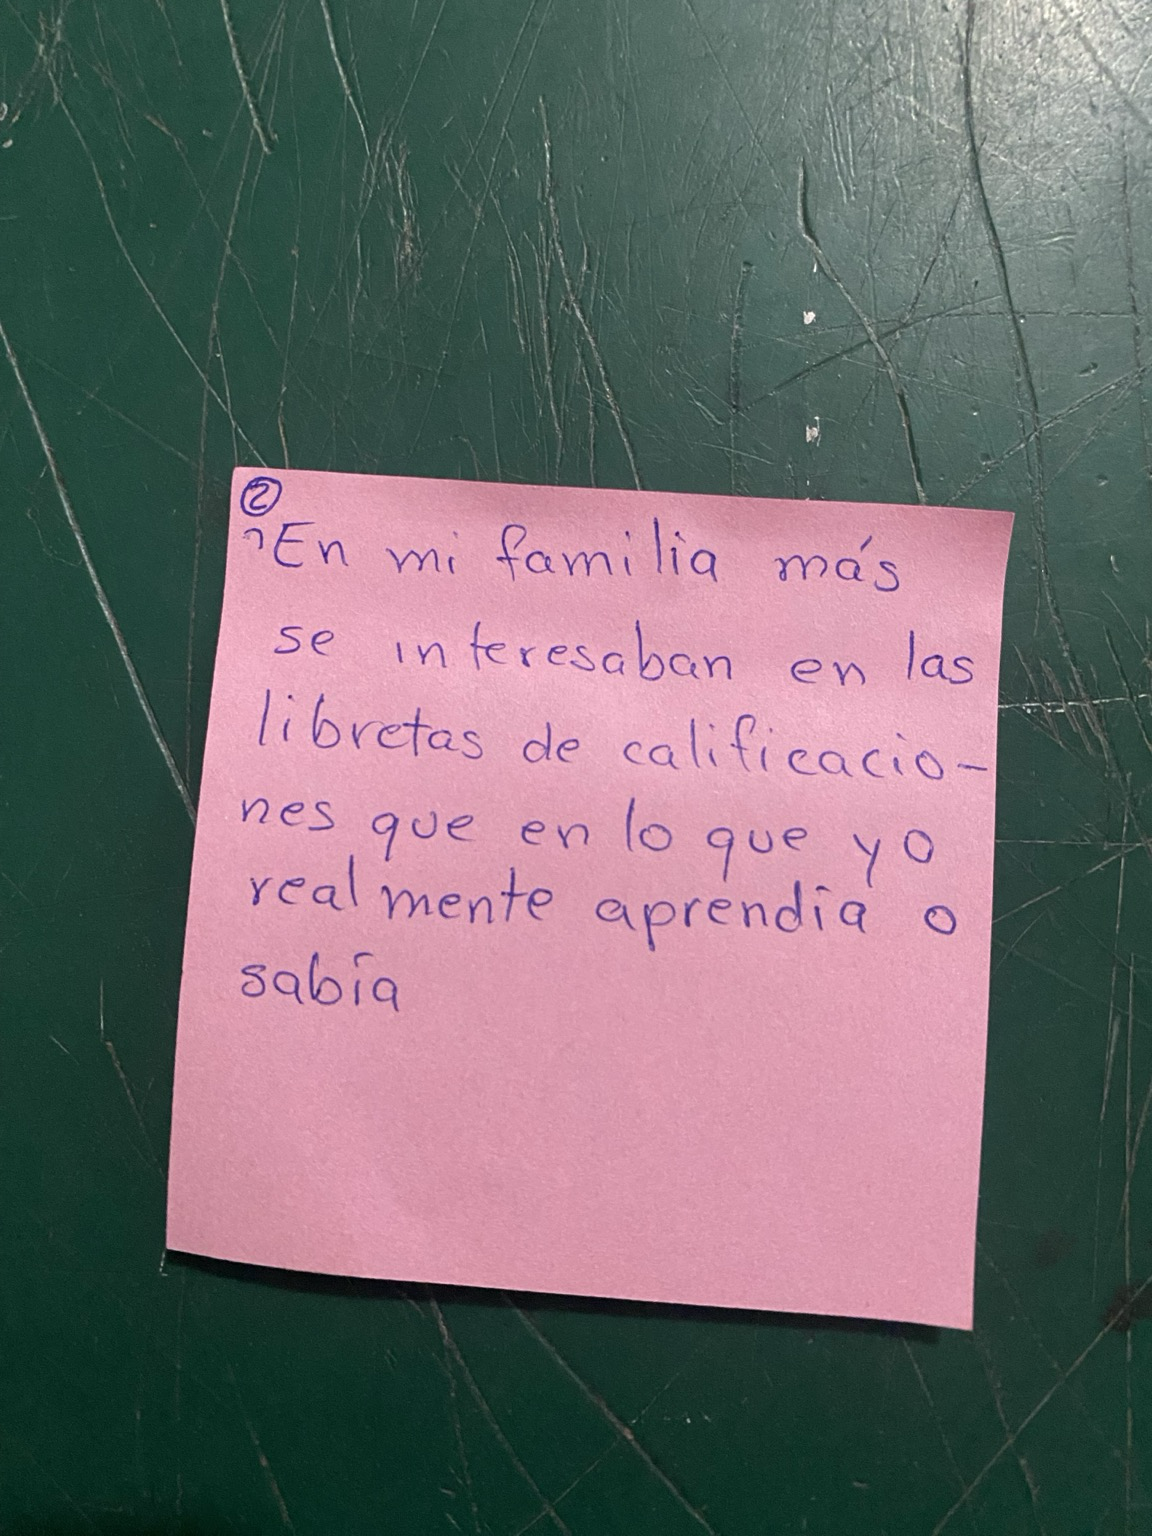 ②
En mi familia más
se interesaban en las
libretas de calificacio-
nes que en lo que yo
realmente aprendía o
sabía